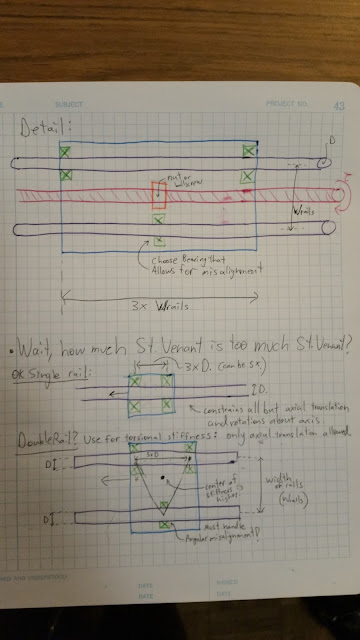 SUBJECT
PROJECT NO.
43
Detail:
D
nut or
Wrails
Choose Bearing that
Allows for misalignment
3x Wrails
• Wait, how much St. Venant is too much St. Venant?
OK Single rail:
3xD. (can be 5x.)
ID.
constrains all but axial translation
and rotations about axis.
Double Rail? Use for torsional stiffness: only axial translation allowed.
3xD
DI
center of
stiffness is
higher
width
of rails
(Wrails)
DI
Must handle
Angular misalignment!
DATE
SIGNED
DATE
DATE